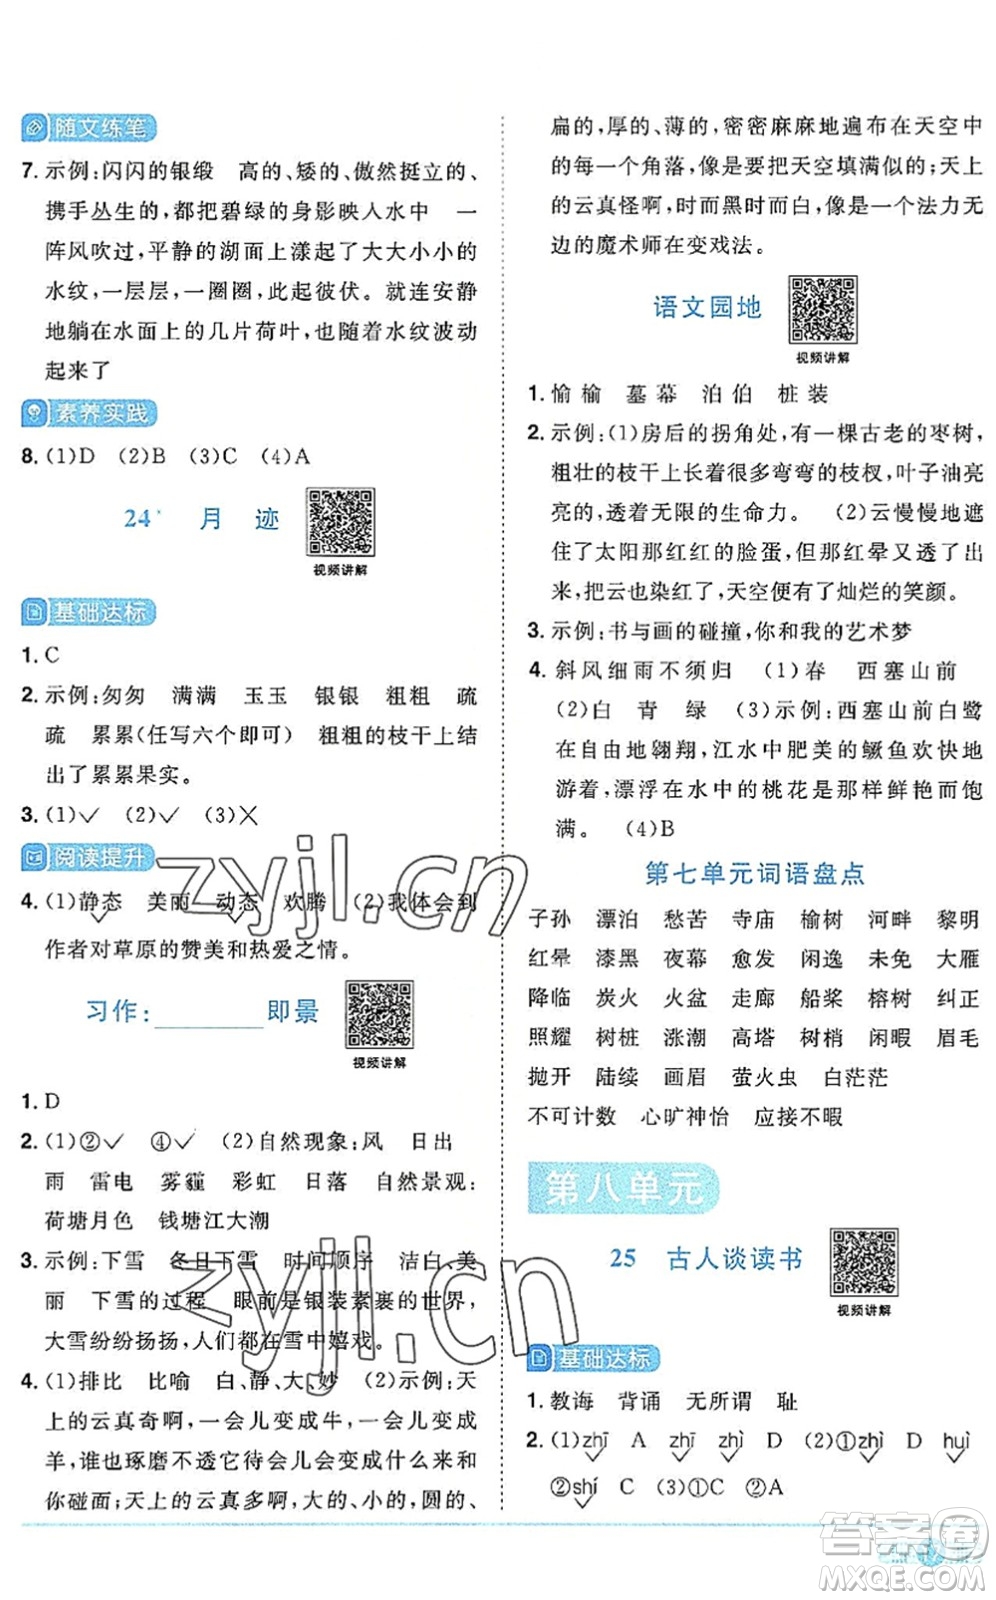 随文练笔
7. 示例:闪闪的银缎　高的、矮的、傲然挺立的、
携手丛生的,都把碧绿的身影映人水中　一
阵风吹过,平静的湖面上漾起了大大小小的
水纹,一层层,一圈圈,此起彼伏。就连安静
地躺在水面上的几片荷叶,也随着水纹波动
起来了
素养实践
8. (1)D　(2)B　(3)C　(4)A
24* 月　迹
视频讲解
基础达标
1. C
2. 示例:匆匆　满满　玉玉　银银　粗粗　疏
疏　累累(任写六个即可)　粗粗的枝干上结
出了累累果实。
3. (1)✓　(2)✓　(3)✕
阅读提升
4. (1)静态　美丽　动态　欢腾　(2)我体会到
作者对草原的赞美和热爱之情。
习作:________即景
视频讲解
1. D
2. (1)②✓　④✓　(2)自然现象:风　日出
雨　雷电　雾霾　彩虹　日落　自然景观:
荷塘月色　钱塘江大潮
3. 示例:下雪　冬日下雪　时间顺序　洁白、美
丽　下雪的过程　眼前是银装素裹的世界,
大雪纷纷扬扬,人们都在雪中嬉戏。
4. (1)排比　比喻　白、静、大、妙　(2)示例:天
上的云真奇啊,一会儿变成牛,一会儿变成
羊,谁也琢磨不透它待会会变成什么来
和你碰面;天上的云真多啊,大的、小的,圆的、
扁的,厚的、薄的,密密麻麻地遍布在天空中
的每一个角落,像是要把天空填满似的;天上
的云真怪啊,时而黑时而白,像是一个法力无
边的魔术师在变戏法。
语文园地
视频讲解
1. 愉　榆　墓　幕　泊　伯　桩　装
2. 示例:(1)房后的拐角处,有一棵古老的枣树,
粗壮的枝干上长着很多弯弯的枝杈,叶子油亮
亮的,散发着无限的生命力。　(2)云慢慢地遮
住了太阳那红红的脸蛋,那红晕又透了出
来,把云也染红了,天空便有了灿烂的笑颜。
3. 示例:书与画的碰撞,你和我的艺术梦
4. 斜风细雨不须归　(1)春　西塞山前
(2)白　青　绿　(3)示例:西塞山前白鹭
在自由地翱翔,江水中肥美的鳜鱼欢快地
游着,漂浮在水中的桃花是那样鲜艳而饱
满。　(4)B
第七单元词语盘点
子孙　漂泊　愁苦　寺庙　榆树　河畔　黎明
红晕　漆黑　夜幕　愈发　闲逸　未免　大雁
降临　炭火　火盆　走廊　船桨　榕树　纠正
照耀　树桩　涨潮　高塔　树梢　闲暇　眉毛
抛开　陆续　画眉　萤火虫　白茫茫
不可计数　心旷神怡　应接不暇
第八单元
25　古人谈读书
视频讲解
基础达标
1. 教诲　背诵　无所谓　耻
2. (1)zhī　A　zhī　zhì　D　(2)①zhì　D　huì
②shí　C　(3)①C　②A
zyjl.cn
zyjl.cn
答案圈
MXQE.COM